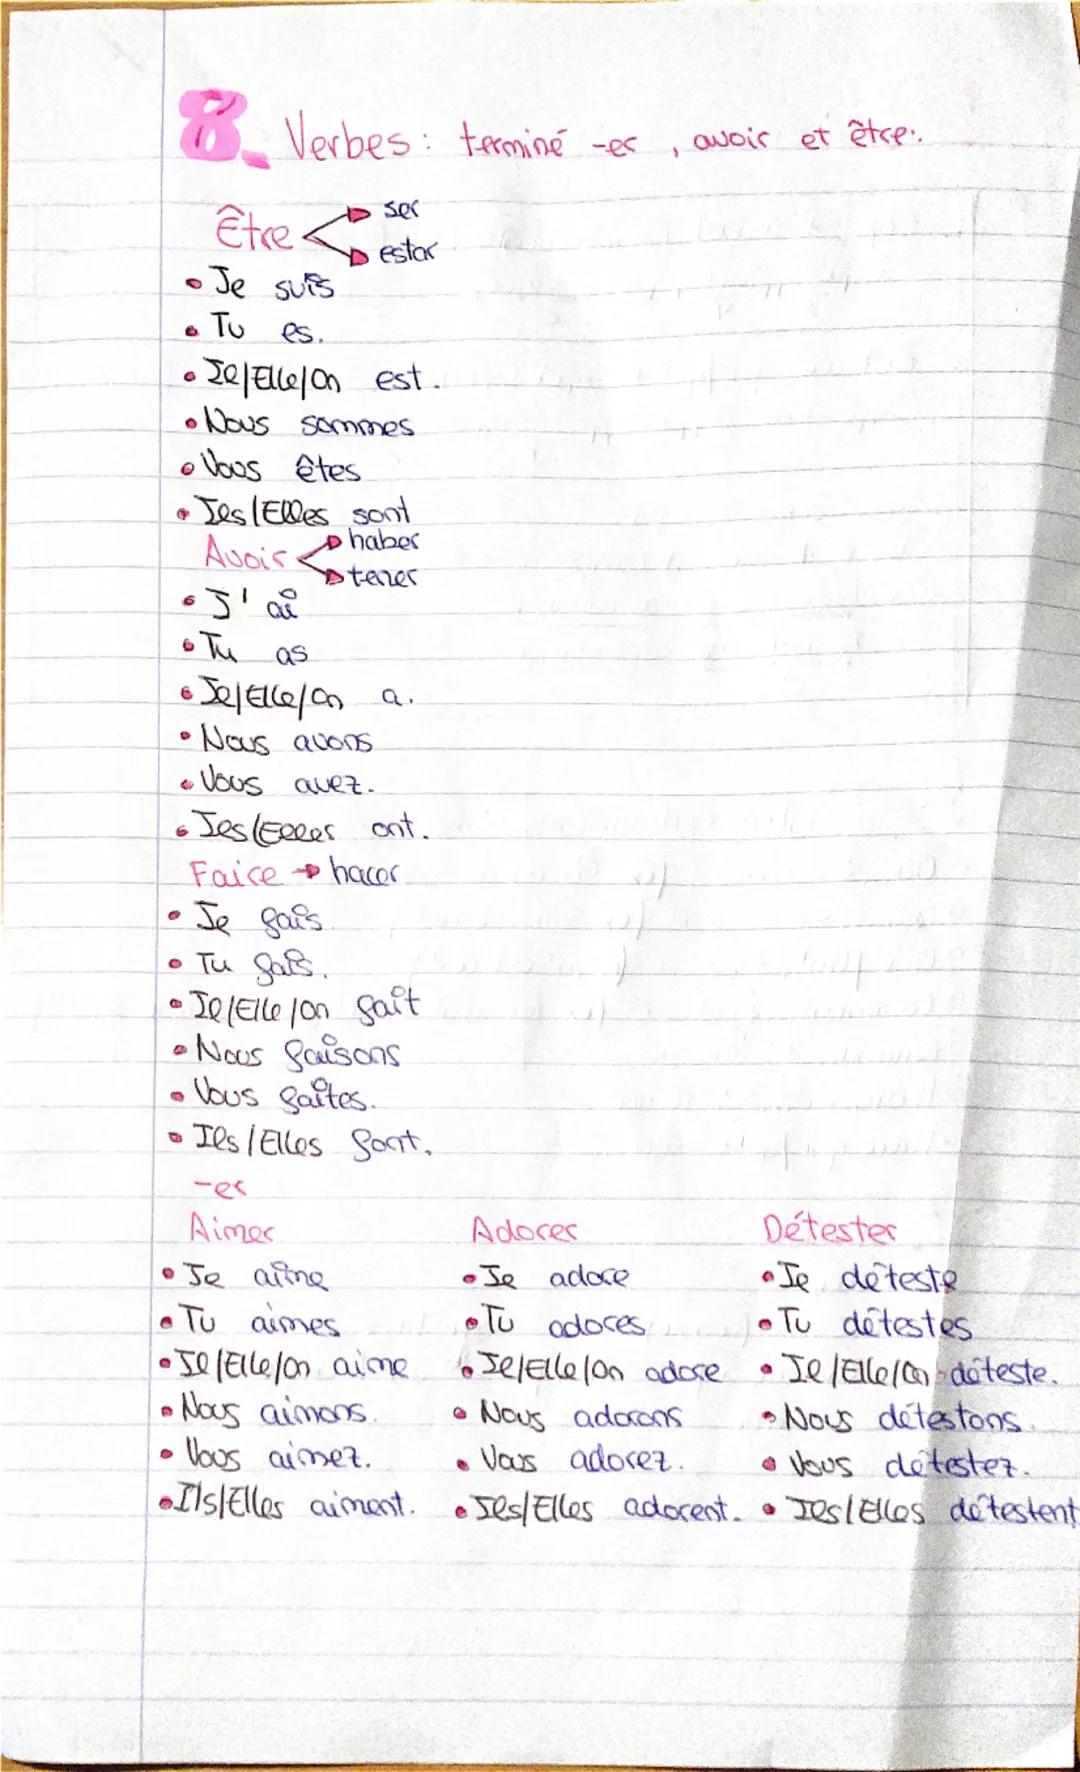 8. Verbes: terminé -er, avoir et être:.
Être ser
estar
• Je suis
• Tu es.
• Il/Elle/On est.
• Nous sommes
• Vous êtes
• Ils/Elles sont
Avoir haber
tener
• J'ai
• Tu as
• Il/Elle/On a.
• Nous avons
• Vous avez.
• Ils/Elles ont.
Faire → hacer
• Je fais.
• Tu fais.
• Il/Elle/On fait
• Nous faisons
• Vous faites.
• Ils/Elles font.
-er
Aimer Adorer Détester
• Je aime • Je adore • Je déteste
• Tu aimes • Tu adores • Tu détestes
• Il/Elle/On aime • Il/Elle/On adore • Il/Elle/On déteste.
• Nous aimons. • Nous adorons • Nous détestons.
• Vous aimez. • Vous adorez. • Vous détestez.
• Ils/Elles aiment. • Ils/Elles adorent. • Ils/Elles détestent